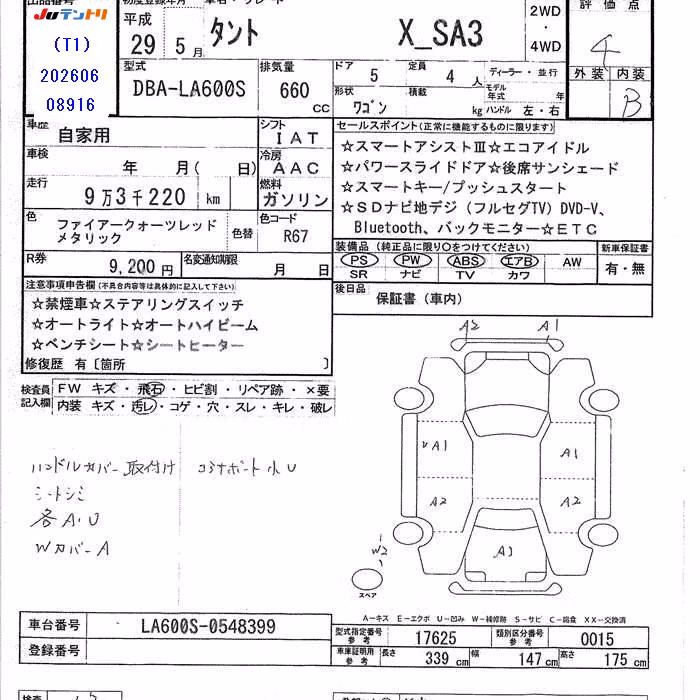 出品番号 初度登録年月 車名・グレード 評価点
JUテントリ 平成 タント X_SA3 2WD
(T1) 29 5月 4WD 4
202606 型式 排気量 ドア 5 定員 4人 ディーラー・並行 外装 内装
08916 DBA-LA600S 660cc 形状 ワゴン 積載 kg モデル年式 年 ハンドル 左・右 B
車歴 自家用 シフト IAT セールスポイント(正常に機能するものに限ります)
車検 年 月( 日) 冷房 AAC ☆スマートアシストⅢ☆エコアイドル
走行 9万3千220km 燃料 ガソリン ☆パワースライドドア☆後席サンシェード
☆スマートキー/プッシュスタート
色 ファイアークォーツレッドメタリック 色替 色コード R67 ☆SDナビ地デジ(フルセグTV)DVD-V、
Bluetooth、バックモニター☆ETC
R券 9,200円 名変通知期限 月 日 装備品(純正品に限り○をつけてください) 新車保証書
PS PW ABS エアB AW 有・無
SR ナビ TV カワ
注意事項申告欄(不具合内容等は具体的に記入して下さい) 後日品 保証書(車内)
☆禁煙車☆ステアリングスイッチ
☆オートライト☆オートハイビーム
☆ベンチシート☆シートヒーター
修復歴 有〔箇所 〕
検査員記入欄 FW キズ・飛石・ヒビ割・リペア跡・×要
内装 キズ・汚レ・コゲ・穴・スレ・キレ・破レ
A2 A1
ハンドルカバー取付け コアサポート小U
シートシミ
各A.U
WカバーA
UA1 A1
A2 A2
W2 A1
スペア
A-キズ E-エクボ U-凹み W-補修跡 S-サビ C-腐食 XX-交換済
車台番号 LA600S-0548399
型式指定番号 参考 17625 類別区分番号 参考 0015
登録番号
車庫証明用 参考 長さ 339cm 幅 147cm 高さ 175cm